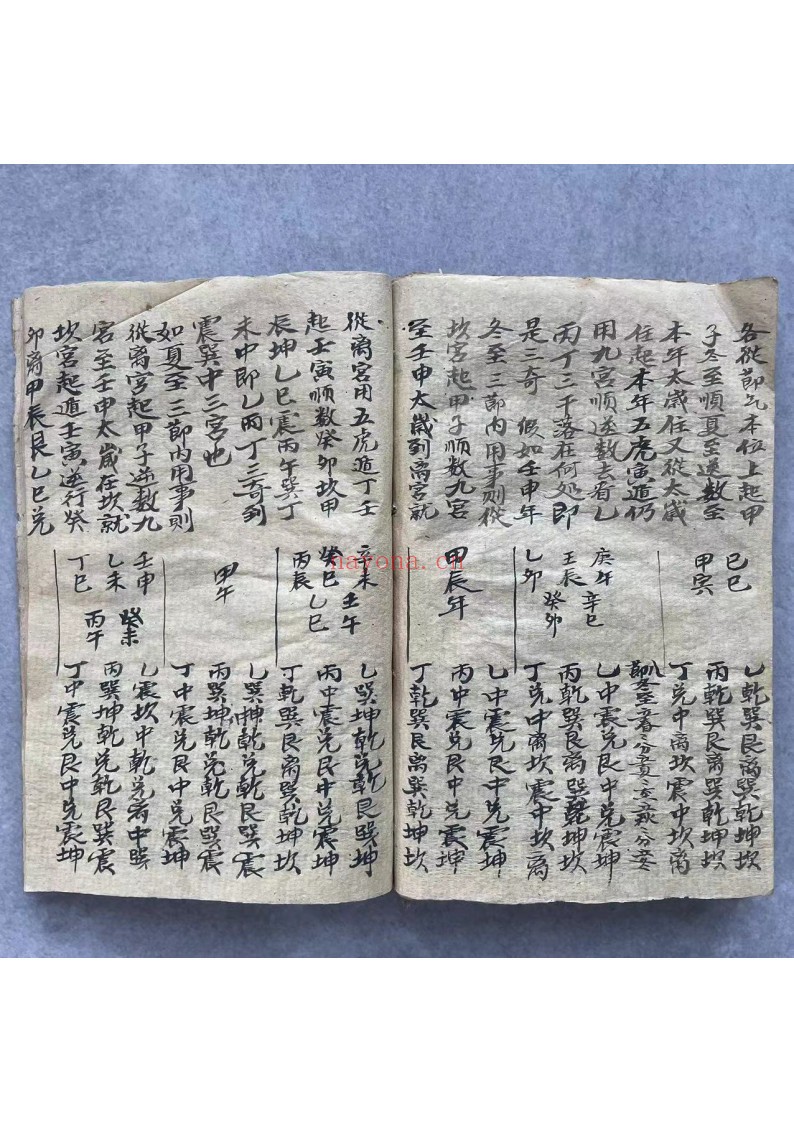 各从節气本位上起甲
子冬至順夏至逆数至
本年太歳住又從太歳
住起本年五虎寅遁仍
用九宮順逆数去看乙
丙丁三干落在何处即
是三奇 假如壬申年
冬至三節内用事則從
坎宮起甲子順数九宮
至壬申太歳到离宮就
己巳
甲寅
庚午 辛巳
壬辰 癸卯
乙卯
甲辰年
乙乾巽艮离巽乾坤坎
丙乾巽艮离巽乾坤坎
丁兑中离坎震中坎离
節冬至春分夏至秋分
乙中震兑艮中兑震坤
丙乾巽艮离巽乾坤坎
丁兑中离坎震中坎离
乙中震兑艮中兑震坤
丙中震兑艮中兑震坤
丁乾巽艮离巽乾坤坎
從离宮用五虎遁丁壬
起壬寅順数癸卯坎甲
辰坤乙巳震丙午巽丁
未中即乙丙丁三奇到
震巽中三宮也
如夏至三節内用事則
從离宮起甲子逆数九
宮至壬申太歳在坎就
坎宮起遁壬寅逆行癸
卯离甲辰艮乙巳兑
辛未 壬午
癸巳 乙巳
丙辰
甲午
壬申 癸未
乙未 丙午
丁巳
乙巽坤乾兑乾艮巽坤
丙中震兑艮中兑震坤
丁乾巽艮离巽乾坤坎
乙巽坤乾兑乾艮巽震
丙巽坤乾兑乾艮巽震
丁中震兑艮中兑震坤
乙震坎中乾兑中巽
丙巽坤乾兑乾艮巽震
丁中震兑艮中兑震坤
nayona.cn